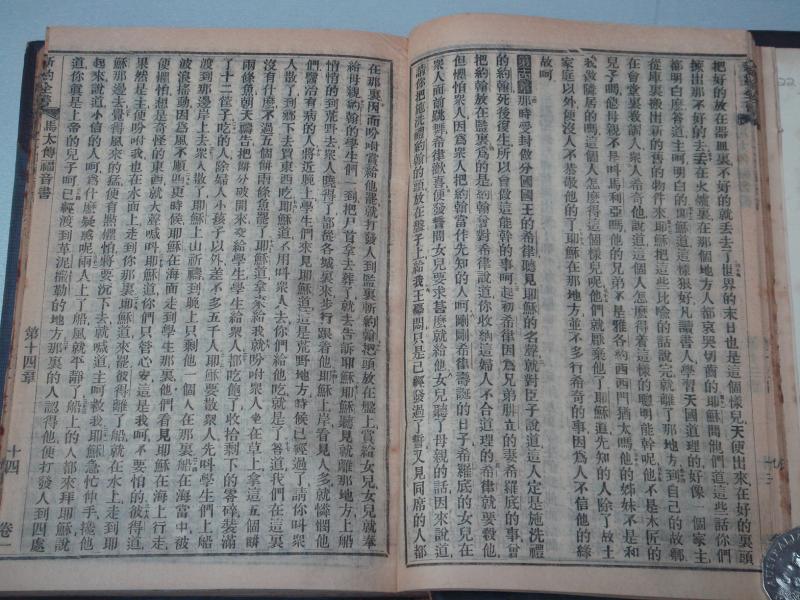 把好的放在器皿裏不好的就丟去了世界的末日也是這個樣兒天使出來在好的裏頭
揀出那不好的去丟在火爐裏在那個地方人都哀哭切齒的耶穌問他們道這些話你們
都明白麼答道主呵明白的耶穌道這樣狠好凡讀書人學習天國道理的好像一個家主
從庫裏搬出新的舊的物件來耶穌把這些比喻的話說完就離了那地方到自己的故鄉
在會堂裏教訓人衆人希奇他說道這個人怎麼得着這樣的聰明能幹呢他不是木匠的
兒子嗎他母親不是叫馬利亞嗎他的兄弟不是雅各約西西門猶太嗎他的姊妹不是和
我做隣居的嗎這個人怎麼得這個樣兒呢他們就厭棄他了耶穌道先知的人除了故土
家庭以外便沒人不恭敬的了耶穌在那地方並不多行希奇的事因為人不信他的緣
故呵
第十四章那時受封做分國國王的希律聽見耶穌的名聲就對臣子說道這人定是施洗禮
的約翰死後復生所以會做這能幹的事呵起初希律因為兄弟腓立的妻希羅底的事曾
把約翰放在監裏為的是約翰曾對希律說道你收納這婦人不合道理的希律就要殺他
但懼怕衆人因為衆人把約翰當作先知的人呵剛剛希律壽誕的日子希羅底的女兒在
衆人面前跳舞希律歡喜便發誓問女兒要求甚麼就給他女兒聽了母親的話因來說道
請你把施洗禮約翰的頭放在盤子上給我王憂悶只是已經發過了誓又見同席的人都
在那裏因而吩咐賞給他罷就打發人到監裏斬約翰把頭放在盤上賞給女兒女兒就奉
給母親約翰的學生們一到把尸首拿去葬了就去告訴耶穌耶穌聽見就離那地方上船
悄悄的到荒野去衆人曉得了都從各城裏來步行跟着他耶穌上岸看見人多就憐憫他
們醫治有病的人將近晚上學生們來見耶穌道這是荒野地方時候已經過了請你叫衆
人散了到鄉下去買東西吃耶穌道不用叫衆人去你們給他吃就是了答道我們在這裏
沒有什麼不過五個餅兩條魚罷了耶穌道拿來給我就吩咐衆人坐在草上拿這五個餅
兩條魚朝天禱告把餅分破開來交給學生學生給衆人都吃飽了收拾剩下的零碎裝滿
了十二筐子吃的人除婦人小孩子以外差不多五千人耶穌要散衆人先叫學生們上船
渡到那邊岸上去衆人散了耶穌上山祈禱到晚上只剩他一個人在那裏船在海當中被
波浪搖動因為風不順四更時候耶穌在海面走到學生那裏他們看見耶穌在海上行走
便懼怕想是奇怪的東西就大聲喊叫耶穌道你們只管心安這是我呵不要怕的彼得道
果然是主便吩咐我也在水面上走到你那裏耶穌道來罷彼得離了船就在水上走到耶
穌那邊去覺得風來的猛便有點懼怕將要沉下去就喊道主呵救我耶穌急忙伸手捲他
起來說道小信的人呵為什麼疑惑呢兩人上了船風就平靜了船上的人都來拜耶穌說
道你眞是上帝的兒子呵已經渡到革泥撒勒的地方那裏的人認得他便打發人到四處
新約全書
馬太傳福音書
第十四章
十四
卷一